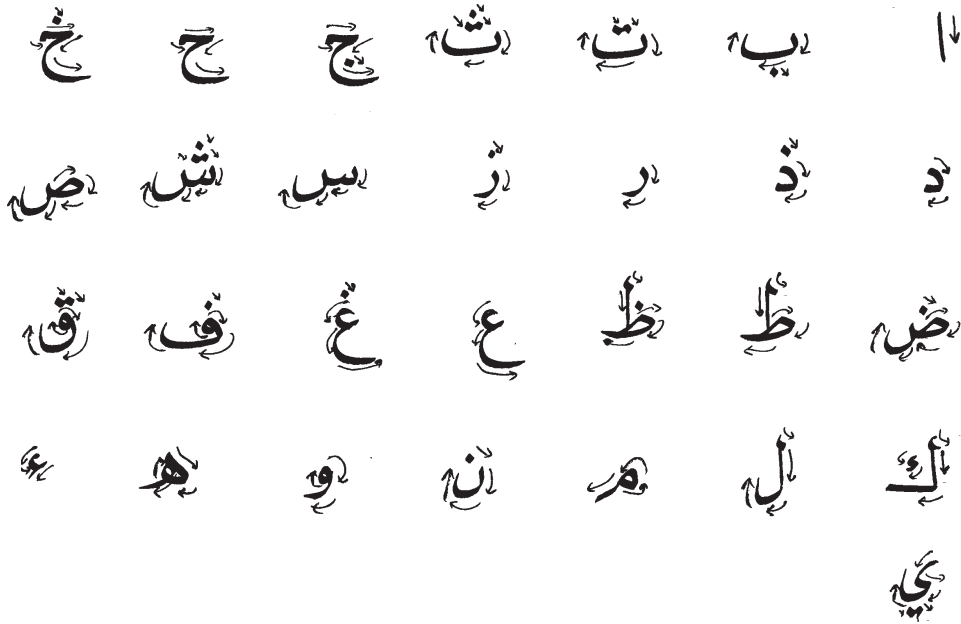 ا ب ت ث ج ح خ
د ذ ر ز س ش ص
ض ط ظ ع غ ف ق
ك ل م ن و ه ء
ي